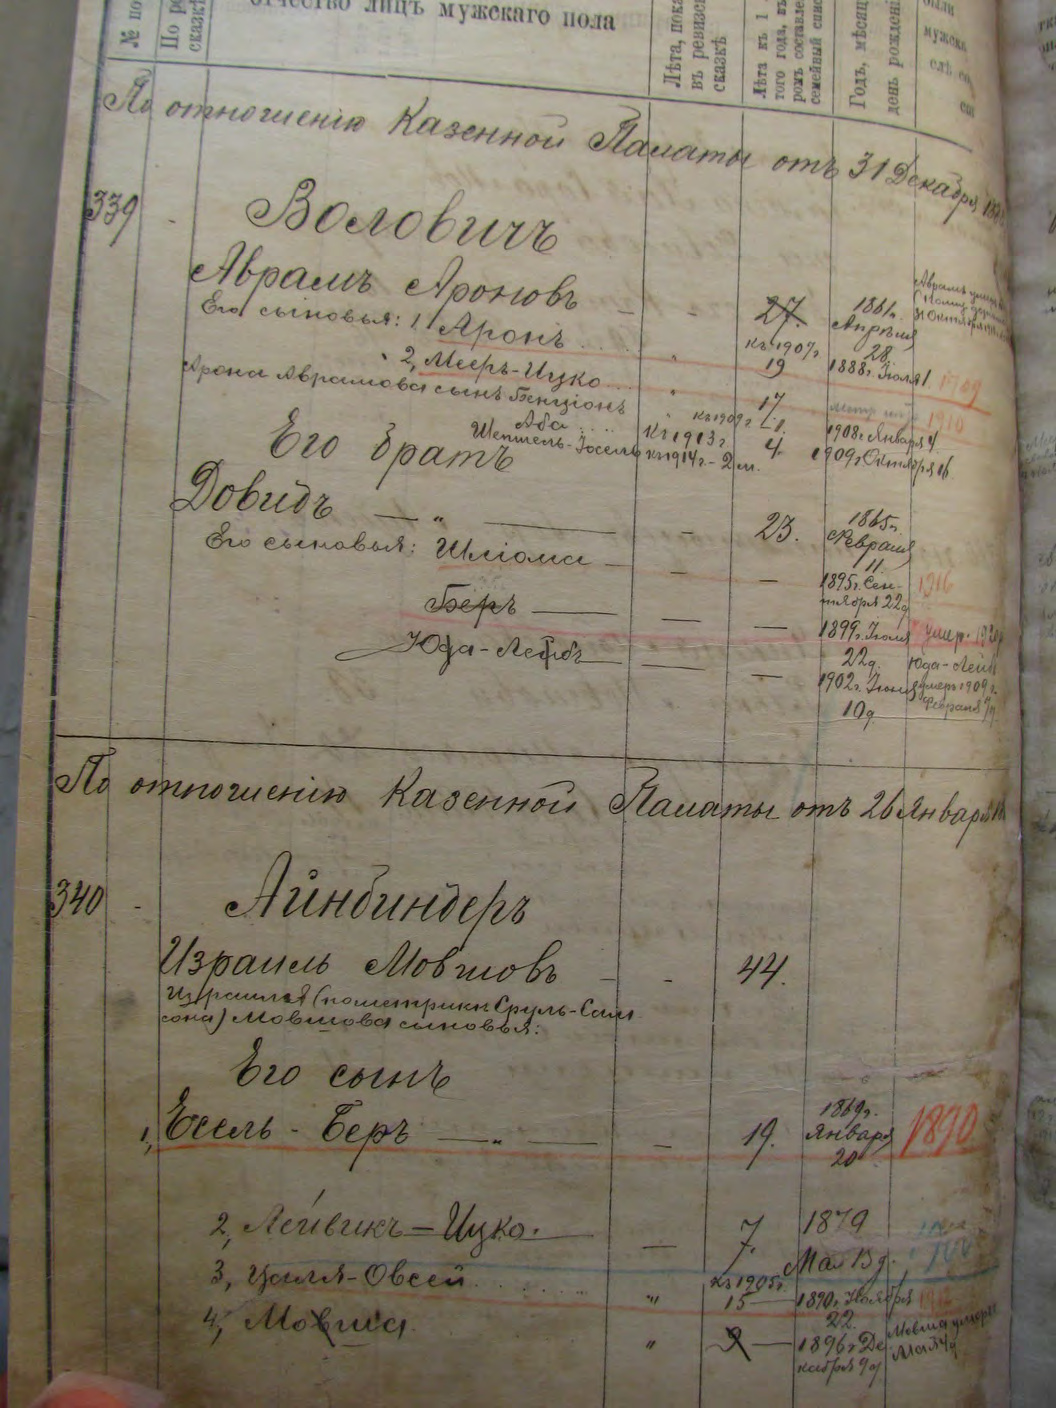 отчество лицъ мужскаго пола
№ по
По р
сказкѣ
Лѣта, пока
въ ревизск
сказкѣ
Лѣта къ 1
того года, въ
ромъ составле
семейный спис
Годъ, мѣсяц
день рожденi
были
мужск
По отношенію Казенной Палаты отъ 31 Декабря
339 -
Воловичъ
Аврамъ Ароновъ - - 27. 1861г. Апрѣля 28.
Его сыновья: 1, Аронъ .... " къ 1907г. 19 1888г. Іюля 1. 1909
2, Мееръ-Ицко ... " 17 1910
Арона Аврамова сынъ Бенціонъ къ 1909г. 1908г. Января 4
Аба .... къ 1913г. 4. 1909г. Октября 16
Шепшель-Іосель къ 1914г. - 2 м.
Его братъ
Довидъ — " — - 23. 1865г. Февраля 11.
Его сыновья: Шліома — — — 1895г. Сентября 22д 1916
Беръ — — — 1899г. Іюля 22д. умер.
Юда-Лейбъ — — — 1902г. Іюня 10д Юда-Лейб умеръ 1909г. Февраля
По отношенію Казенной Палаты отъ 26 Января
340 -
Айнбиндеръ
Израиль Мовшовъ - - 44.
Израиля (по метрики Сруль-Сам
сона) Мовшова сыновья:
Его сынъ
1, Есель-Беръ — " — — 19. 1869г. Января 20 1890
2, Лейвикъ-Ицко. — — 7. 1879 Мая 13д.
3, Цаля-Овсей ..... " къ 1905г. 15 — 1890г. Ноября 22. 1912
4, Мовша " 9 — 1896г. Декабря 9д Мовша умеръ Мая 4д